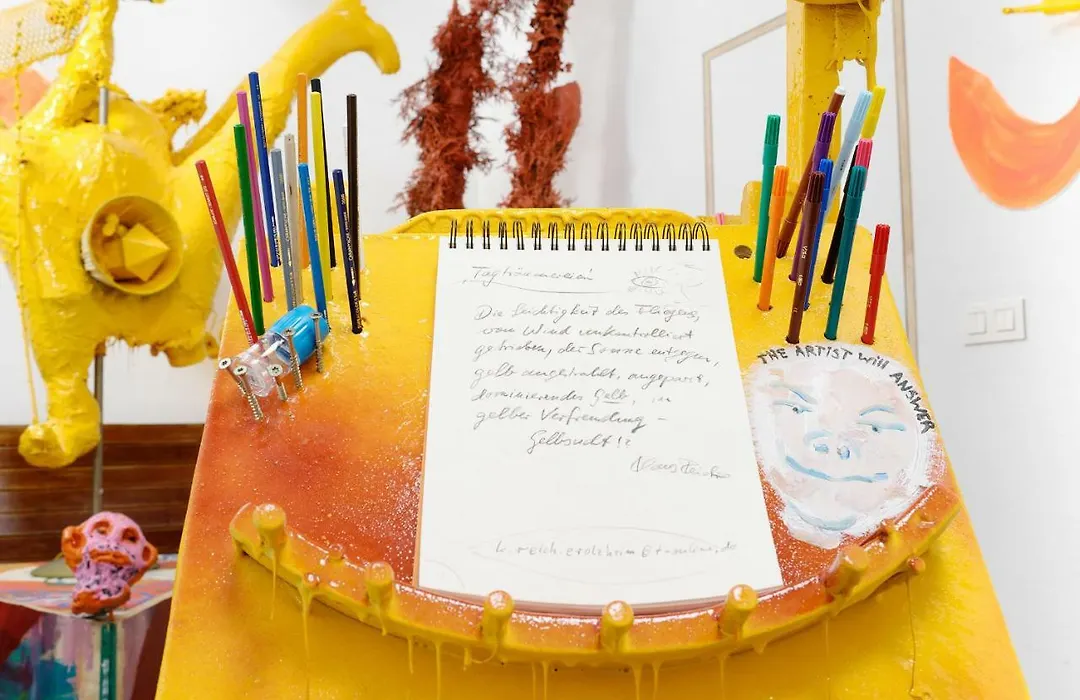 Tagträumereien!
Die Leichtigkeit des Fliegens,
vom Wind unkontrolliert
getrieben, der Sonne entzogen,
gelb angestrahlt, angepasst,
dominierendes Gelb, in
gelber Verfremdung –
Gelbsucht!?
THE ARTIST will ANSWER